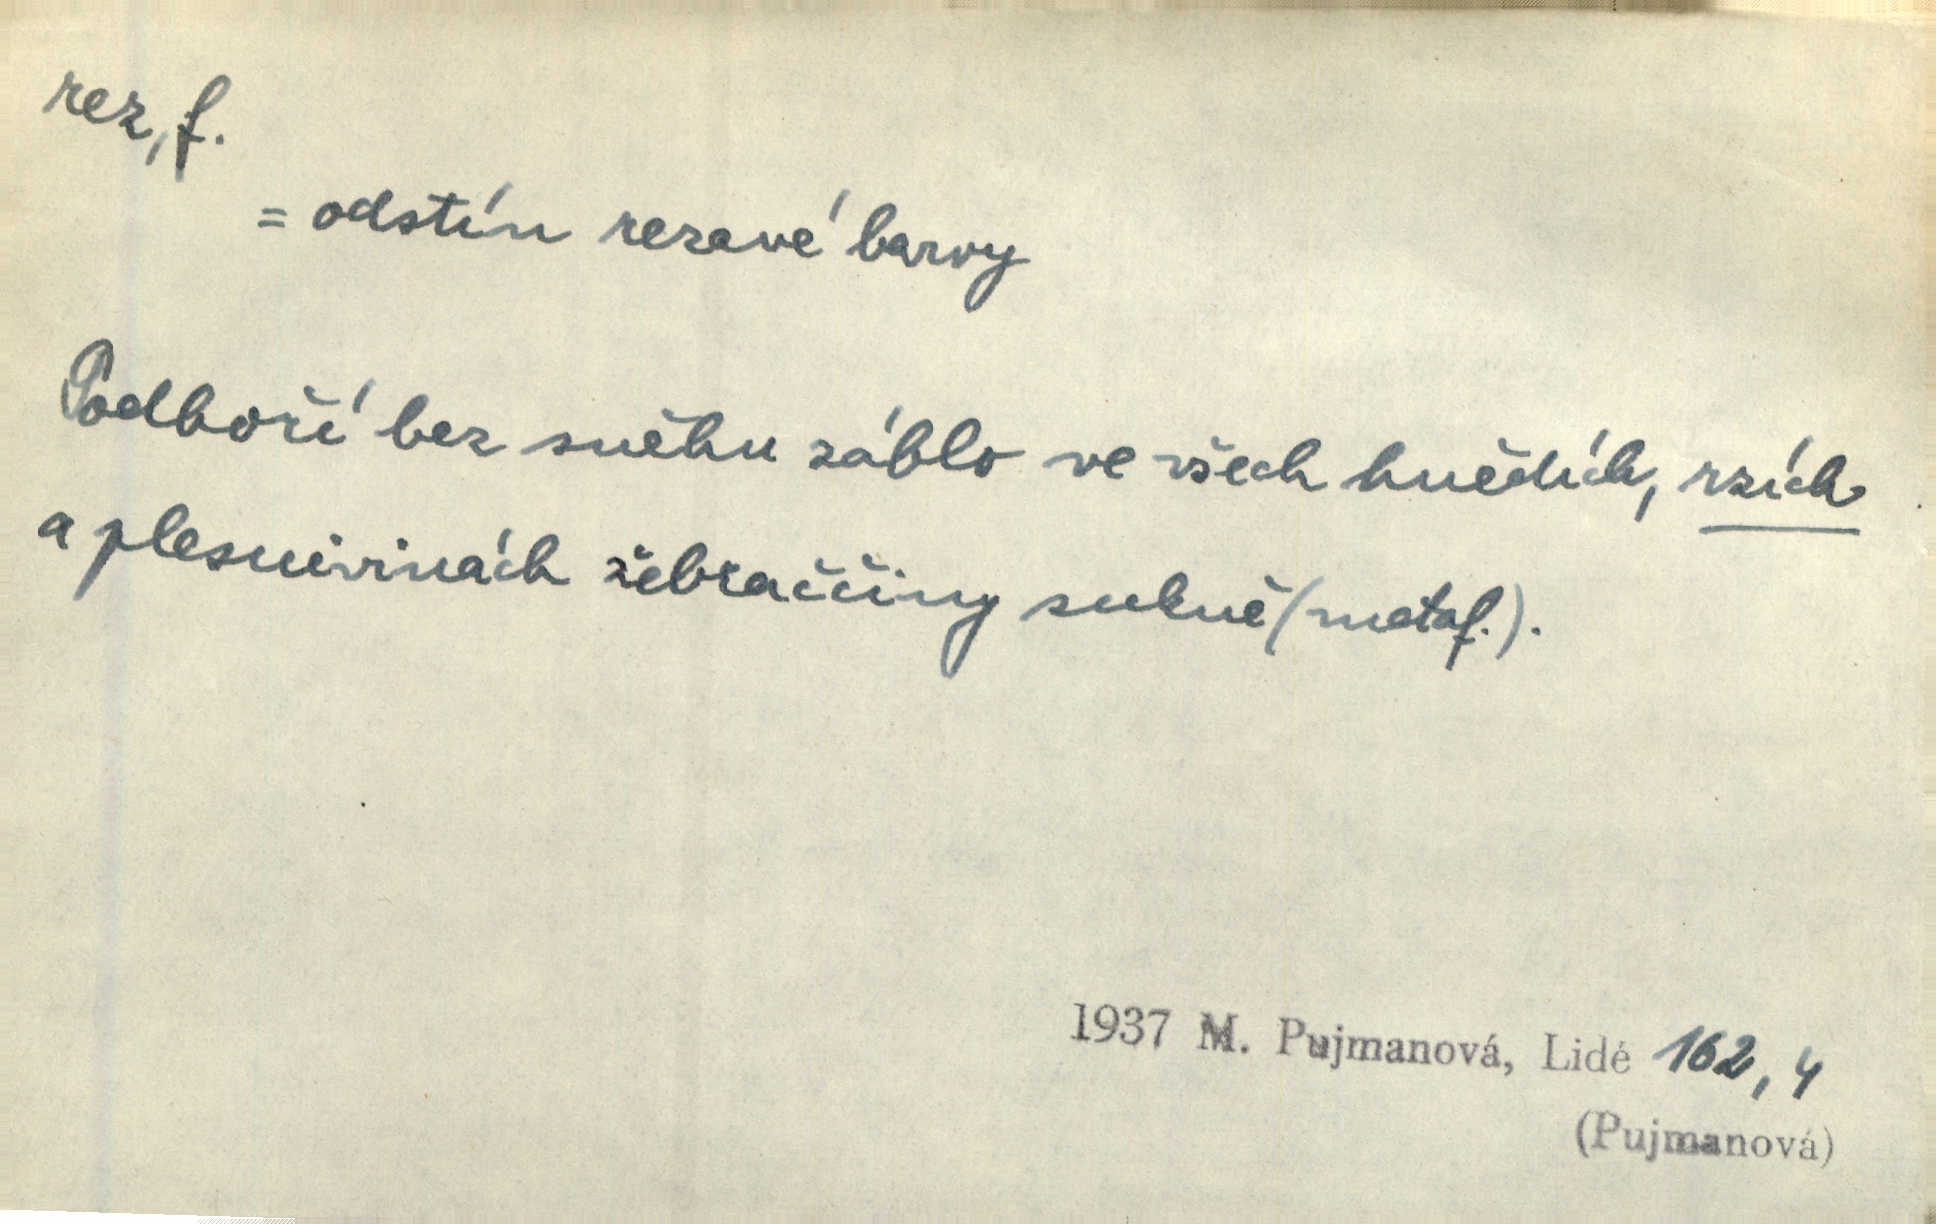 rez, f.
= odstín rezavé barvy
Podboří bez sněhu záblo ve všech hnědích, rzích
a plesnivinách žebraččiny sukně (metaf.).
1937 M. Pujmanová, Lidé 162, 4
(Pujmanová)